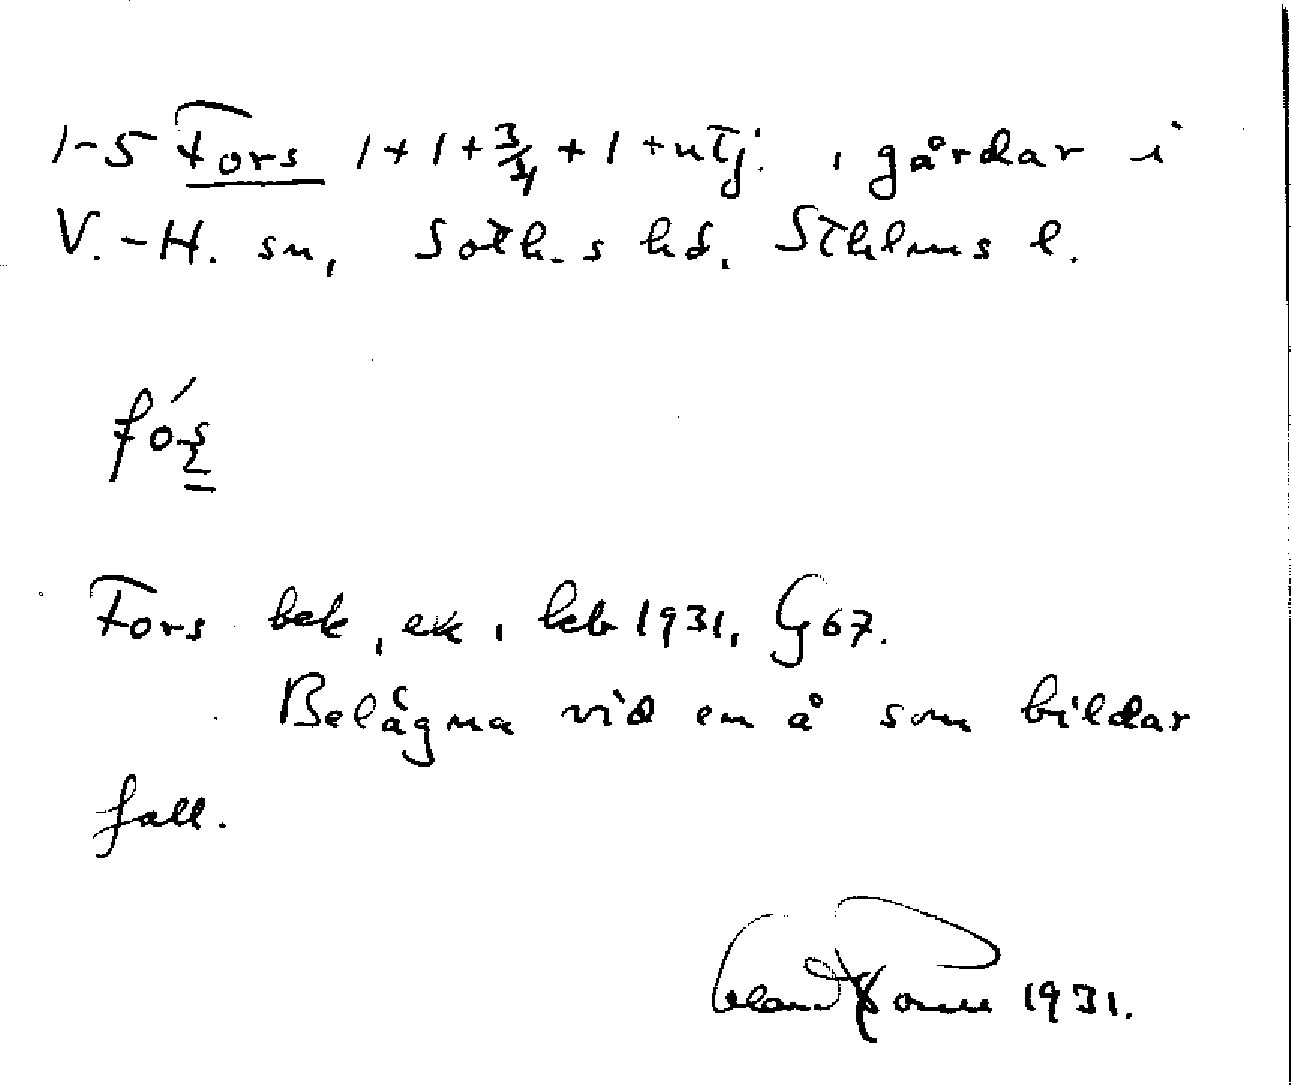 1-5 Fors 1+1+3/4+1+utj. , gårdar i
V.-H. sn, Soth-s hd. Sthlms l.
fó
Fors bek, ek, kcb 1931, G 67.
Belägna vid en å som bildar
fall.
1931.